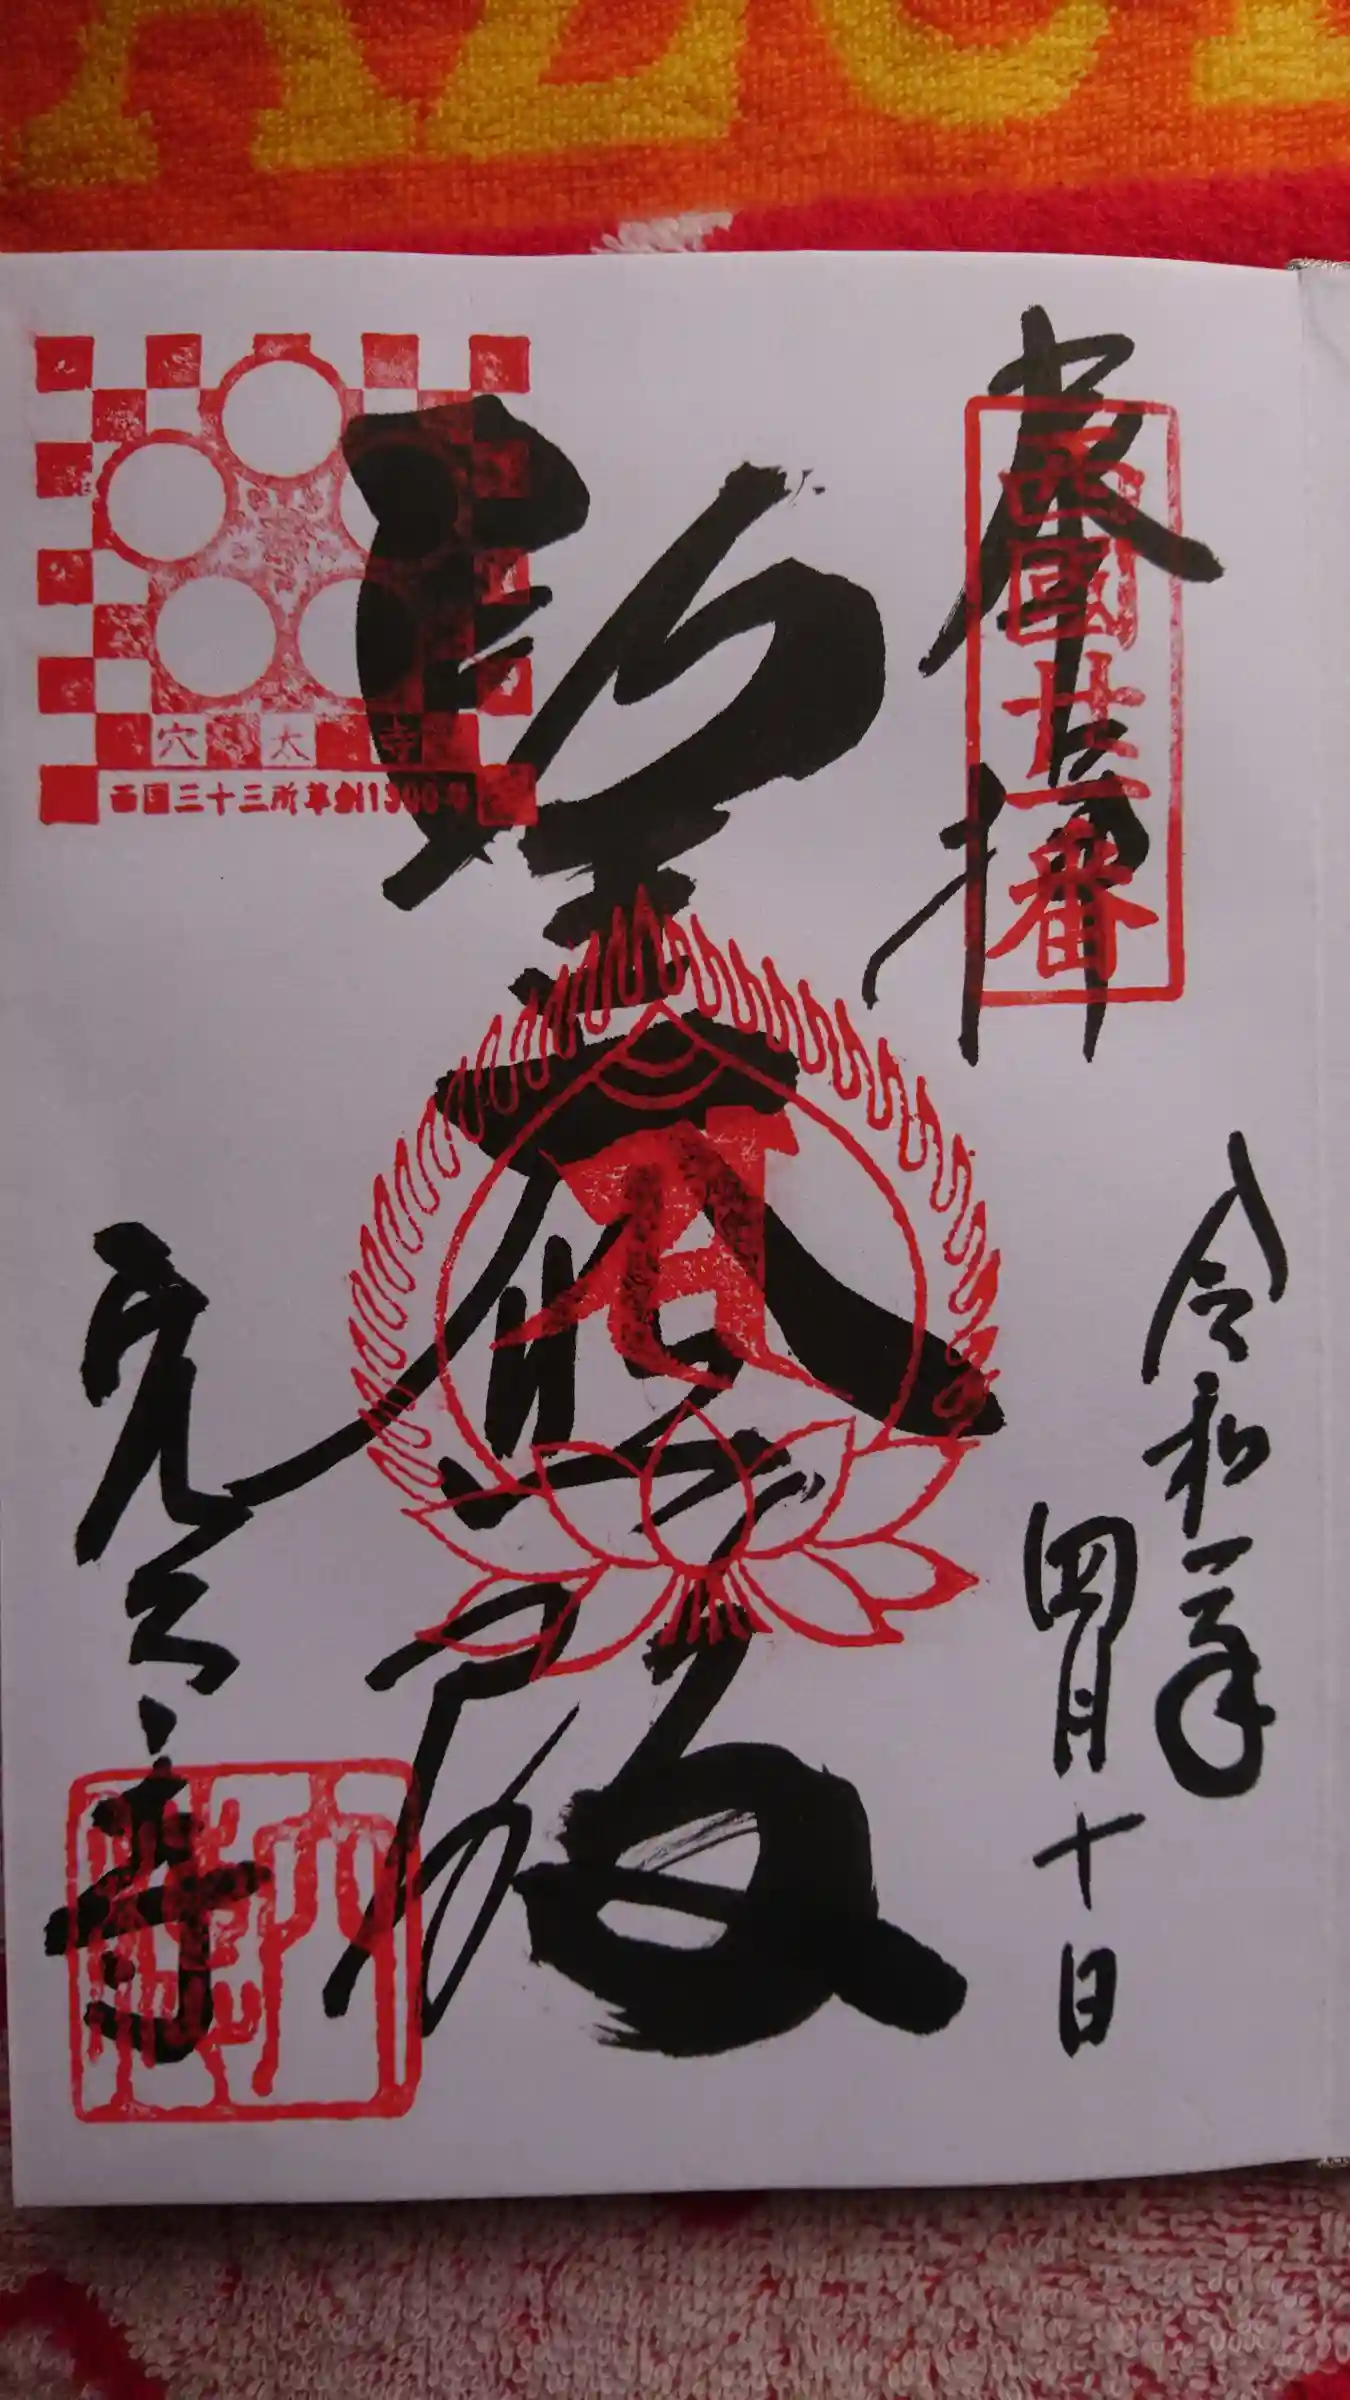 奉拝
西國廿一番
令和二年
四月十日
聖大悲殿
穴太寺
西国三十三所草創1300年
穴太寺